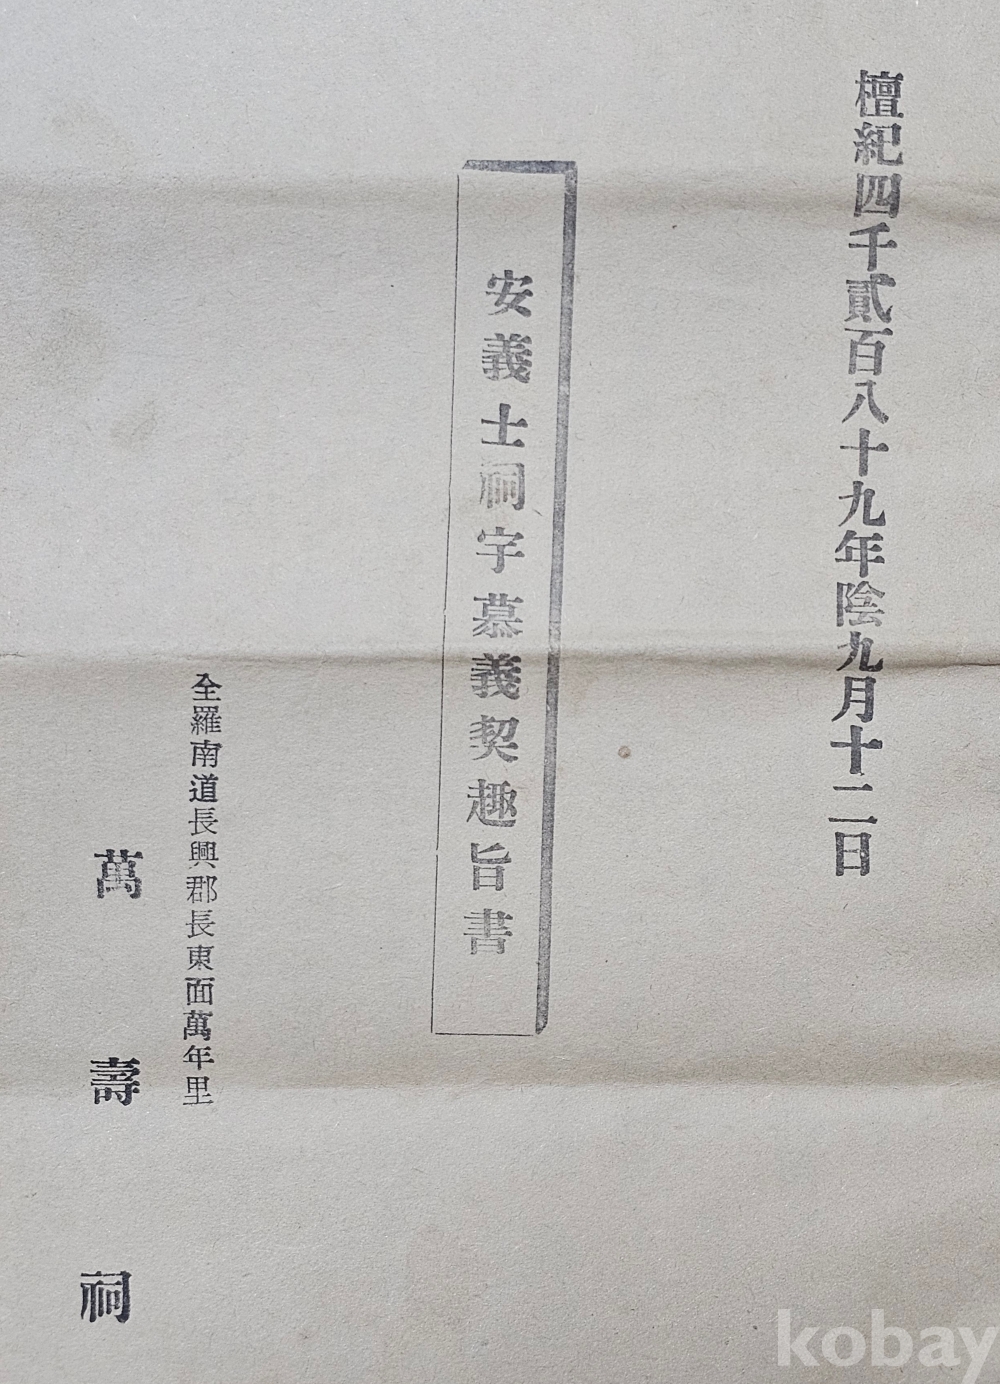 檀紀四千貳百八十九年陰九月十二日
安義士祠宇慕義契趣旨書
全羅南道長興郡長東面萬年里
萬壽祠
kobay